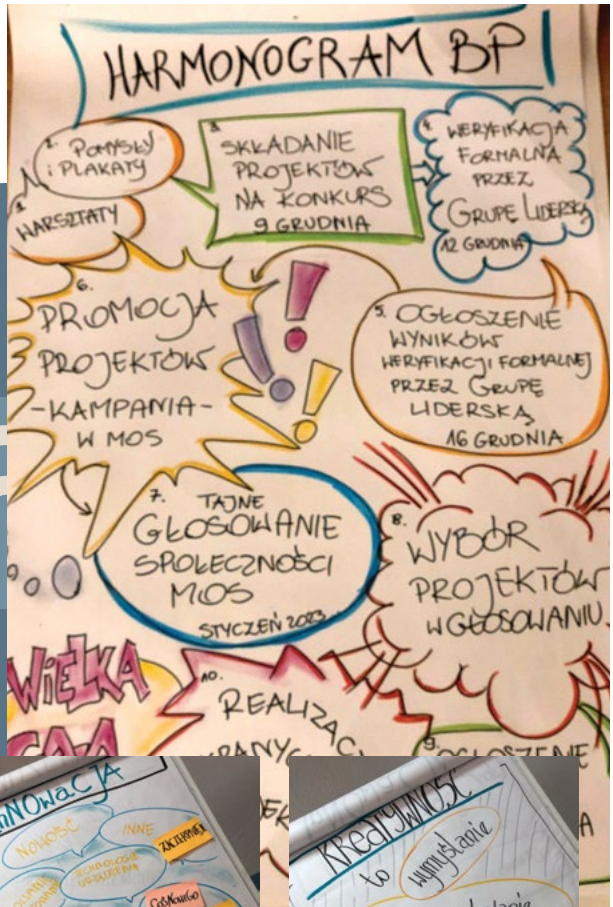 HARMONOGRAM BP
1.
WARSZTATY
2. POMYSŁY
i PLAKATY
3.
SKŁADANIE
PROJEKTÓW
NA KONKURS
9 GRUDNIA
4. WERYFIKACJA
FORMALNA
PRZEZ
GRUPĘ LIDERSKĄ
12 GRUDNIA
5. OGŁOSZENIE
WYNIKÓW
WERYFIKACJI FORMALNEJ
PRZEZ GRUPĘ
LIDERSKĄ
16 GRUDNIA
6.
PROMOCJA
PROJEKTÓW
-KAMPANIA-
W MOS
7. TAJNE
GŁOSOWANIE
SPOŁECZNOŚCI
MOS
STYCZEŃ 2023
8.
WYBÓR
PROJEKTÓW
W GŁOSOWANIU
9.
OGŁOSZENIE
10.
WIELKA
INNOWACJA
NOWOŚĆ
INNE
KREATYWNOŚĆ
to wymyślanie